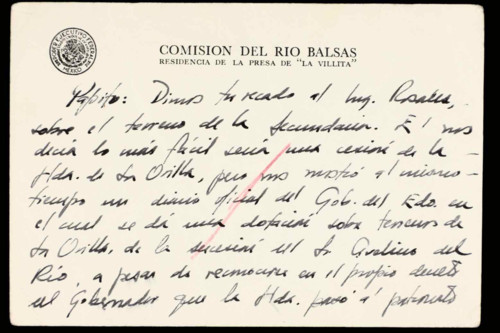 COMISION DEL RIO BALSAS
RESIDENCIA DE LA PRESA DE "LA VILLITA"
Dimos tu recado al Ing. Rosales,
sobre el terreno de la Secundaria. El nos
decía lo más fácil sería una cesión de la
Hda. de La Orilla, pero nos mostró al mismo
tiempo un diario oficial del Gob. del Edo. en
el cual se dá una dotación sobre terrenos de
La Orilla, de la sucesión del Sr. del
Río, a pesar de reconocerse en el propio decreto
del Gobernador que la Hda. pasó al